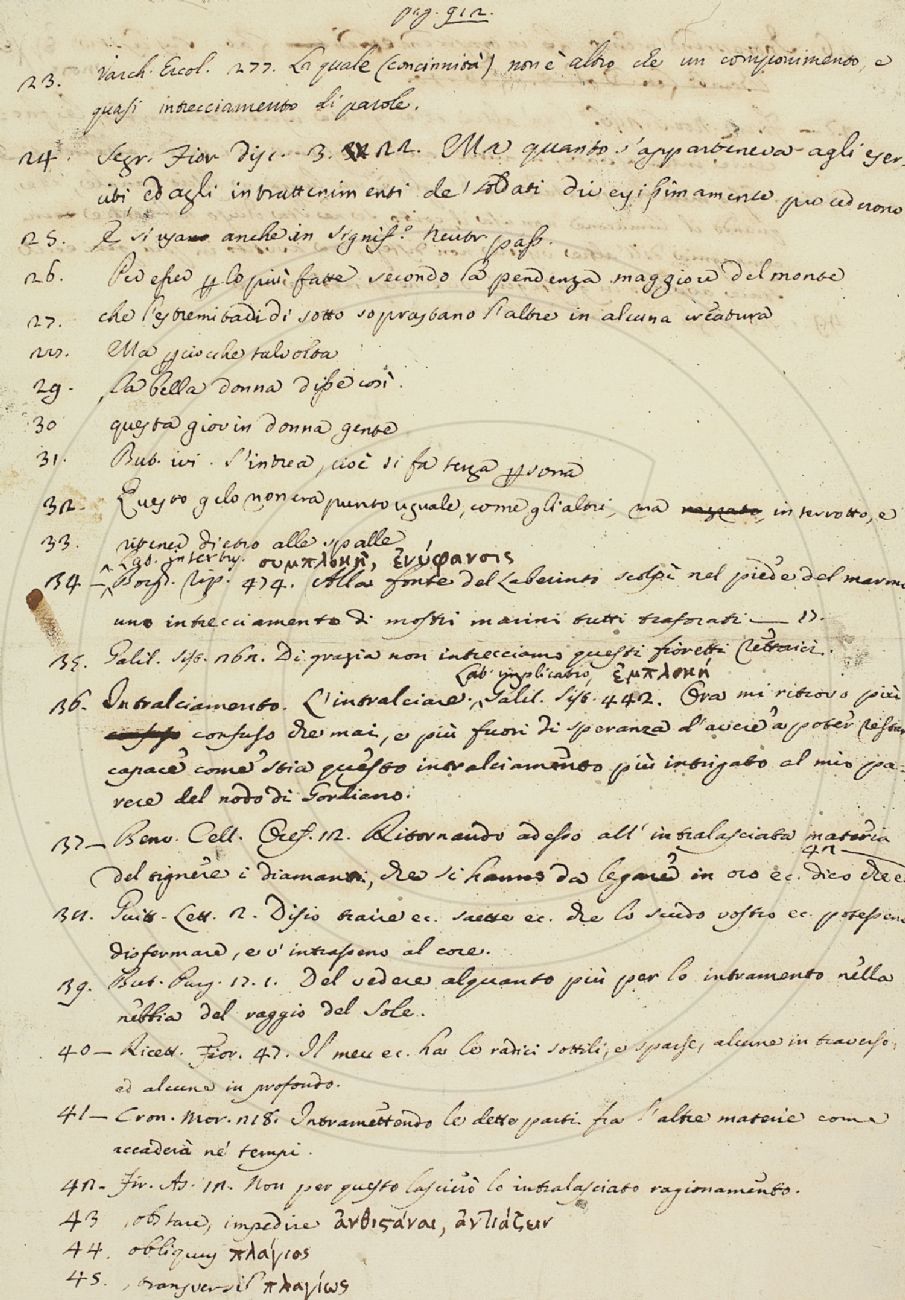 pag. 912.
23. Varch. Ercol. 277. La quale (concinnità) non è altro che un componimento, e
quasi intrecciamento di parole.
24. Segr. Fior. disc. 3. 22. Ma quanto s'apparteneva agli eser-
citi, ed agli intrattenimenti de' soldati diversissimamente procederono
25. E si usa anche in signif.º neutr. pass.
26. più fatte secondo la pendenza maggiore del monte
27. che l'estremitadi di sotto soprastano l'altre in alcuna creatura
28. Ma perciocche talvolta
29. La bella donna disse così.
30 questa giovin donna gente
31. But. ivi. S'intrea, cioè si fa terza persona
32. Questo gelo non era punto uguale, come gli altri, ma interrotto, e
33. riteneva dietro alle spalle
Lat. συμπλοκὴ, ἐνύφανσις
34 - Borgh. Rip. 474. Alla fonte del Laberinto scolpì nel piede del marmo
uno intrecciamento di mostri marini tutti traforati
35. Galil. Sist. 262. Di grazia non intrecciamo questi fioretti rettorici.
Lat. implicatio, ἐμπλοκή
36. Intralciamento. L'intralciare. Galil. Sist. 442. Ora mi ritrovo più
confuso che mai, e più fuori di speranza d'avere a poter restar
capace come stia questo intralciamento più intrigato al mio pa-
rere del nodo di Gordiano.
37 - Benv. Cell. Oref. 12. Ritornando adesso all' intralasciata materia
42
del tignere i diamanti, che si hanno da legare in oro ec. dico che
38. Guitt. Lett. 2. Disio traire ec. saette ec. che lo scudo vostro ec. potessono
disfermare, e v'intrasseno al core.
39. But. Purg. 17. 1. Del vedere alquanto più per lo intramento nella
nebbia del raggio del Sole.
40 - Ricett. Fior. 47. Il meu ec. ha le radici sottili, e sparse, alcune in traverso,
ed alcune in profondo.
41 - Cron. Mor. 218. Intramettendo le dette parti fra l'altre materie come
accaderà ne' tempi.
42 - Fir. As. 12. Non per questo lascierò lo intralasciato ragionamento.
43 obstare, impedire ἀνθιςάναι, ἀντιάζειν
44. obliquus πλάγιος
45. πλαγίως